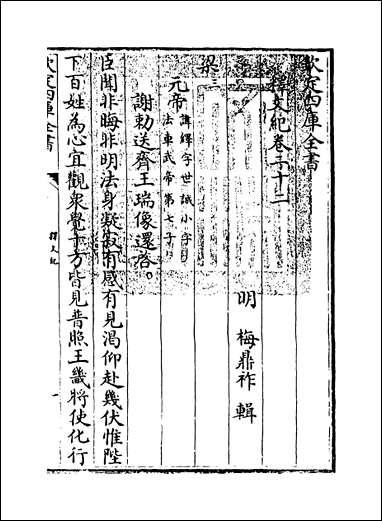 欽定四庫全書
釋文紀卷二十二
明 梅鼎祚 輯
梁三
元帝 諱繹字世誠小字
法車武帝第七子
謝勅送齊王瑞像還啓。
臣聞非晦非明法身凝寂有感有見渴仰赴幾伏惟陛
下百姓為心宜觀衆覺十方皆見普照王畿將使化行
欽定四庫全書
釋文紀
一